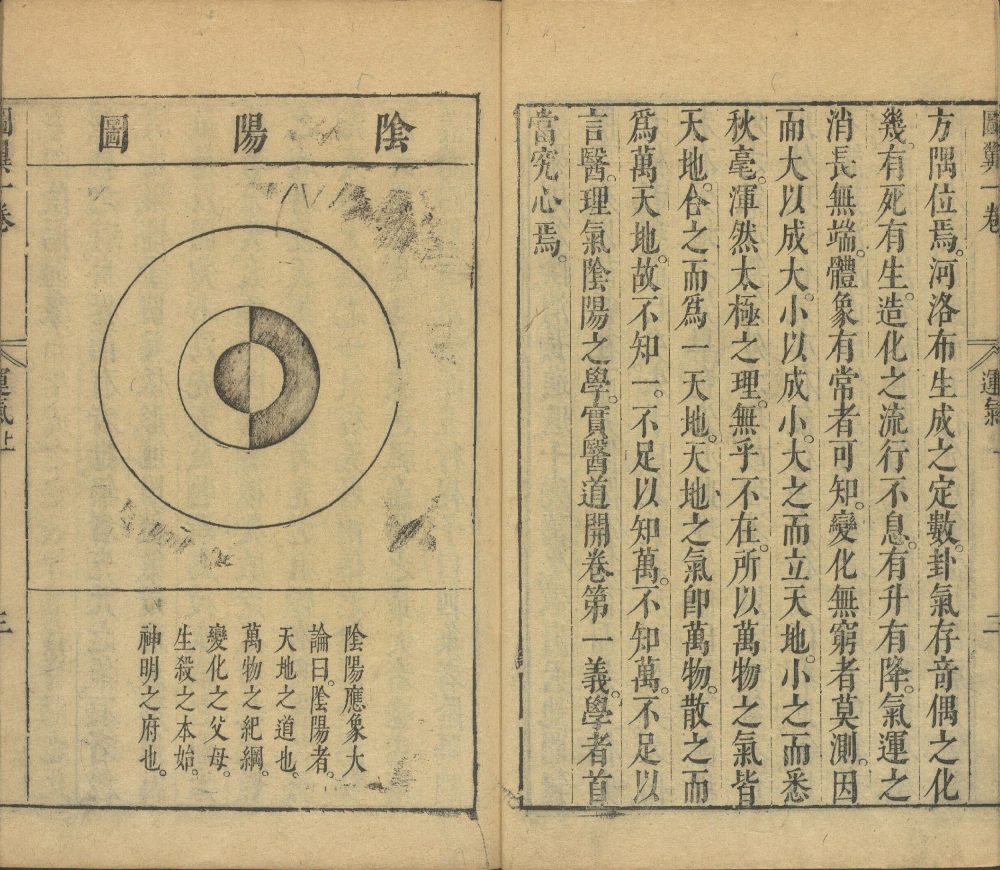 圖翼一卷
運氣
二
方隅位焉。河洛布生成之定數。卦氣存奇偶之化
幾。有死有生。造化之流行不息。有升有降。氣運之
消長無端。體象有常者可知。變化無窮者莫測。因
而大以成大。小以成小。大之而立天地。小之而悉
秋毫。渾然太極之理。無乎不在。所以萬物之氣皆
天地。合之而爲一天地。天地之氣卽萬物。散之而
爲萬天地。故不知一。不足以知萬。不知萬。不足以
言醫。理氣陰陽之學。實醫道開卷第一義。學者首
當究心焉。
陰陽圖
陰陽應象大
論曰。陰陽者。
天地之道也。
萬物之紀綱。
變化之父母。
生殺之本始。
神明之府也。
圖翼一卷
運氣上
三